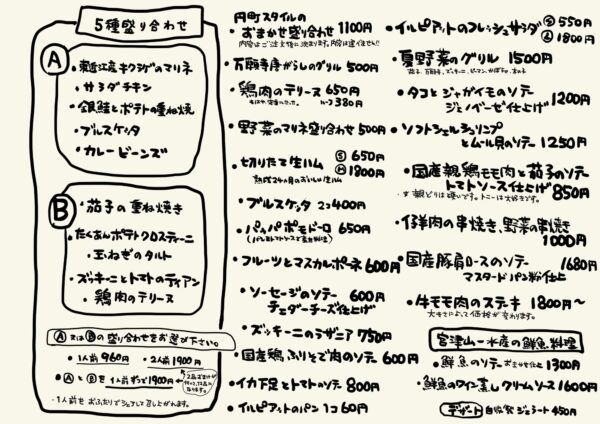 5種盛り合わせ
A
・東近江産キクラゲのマリネ
・サラダチキン
・銀鮭とポテトの重ね焼
・ブルスケッタ
・カレービーンズ
B
・茄子の重ね焼き
・たくあんポテトクロスティーニ
・玉ねぎのタルト
・ズッキーニとトマトのティアン
・鶏肉のテリーヌ
Ⓐ又はⒷの盛り合わせをお選び下さい。
・1人前960円 ・2人前1900円
・ⒶとⒷを1人前ずつ1900円
・1人前をお二人でシェアして召し上がれます。
円町スタイルの
・おまかせ盛り合わせ 1100円
・万願寺唐がらしのグリル 500円
・鶏肉のテリーヌ 650円
ハーフ 380円
・野菜のマリネ盛り合わせ 500円
・切りたて生ハム Ⓢ650円
Ⓜ1800円
熟成24ヶ月のおいしい生ハム
・ブルスケッタ 2コ400円
・パッパポモドーロ 650円
・フルーツとマスカルポーネ 600円
・ソーセージのソテー 600円
チェダーチーズ仕上げ
・ズッキーニのラザニア 750円
・国産鶏ふりそで肉のソテー 600円
・イカ下足とトマトのソテー 800円
・イルピアットのパン 1コ60円
・イルピアットのフレッシュサラダ Ⓢ550円
Ⓛ1800円
・夏野菜のグリル 1500円
・タコとジャガイモのソテー
ジェノベーゼ仕上げ 1200円
・ソフトシェルシュリンプ
とムール貝のソテー 1250円
・国産親鶏モモ肉と茄子のソテー
トマトソース仕上げ 850円
・仔羊肉の串焼き、野菜の串焼き
1000円
・国産豚肩ロースのソテー 1680円
マスタードパン粉仕上
・牛モモ肉のステーキ 1800円〜
大きさによって価格が変わります。
宮津山一水産の鮮魚料理
・鮮魚のソテー 1300円
・鮮魚のワイン蒸しクリームソース1600円
デザート 自家製ジェラート 450円